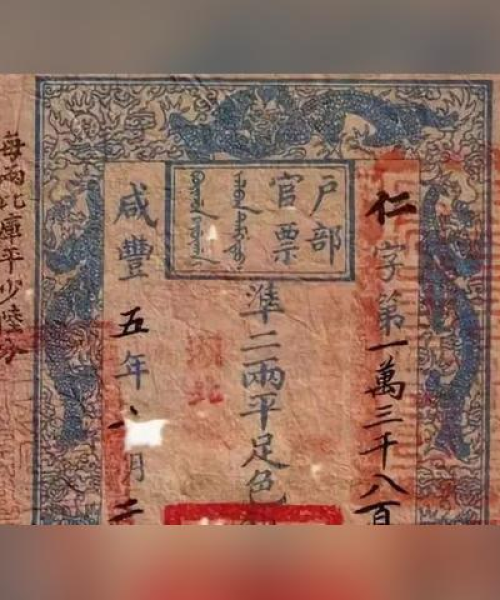 仁字第一萬三千八百
户部
官票
準二兩平足色
湖北
咸豐五年八月二
每兩比庫平少陸分